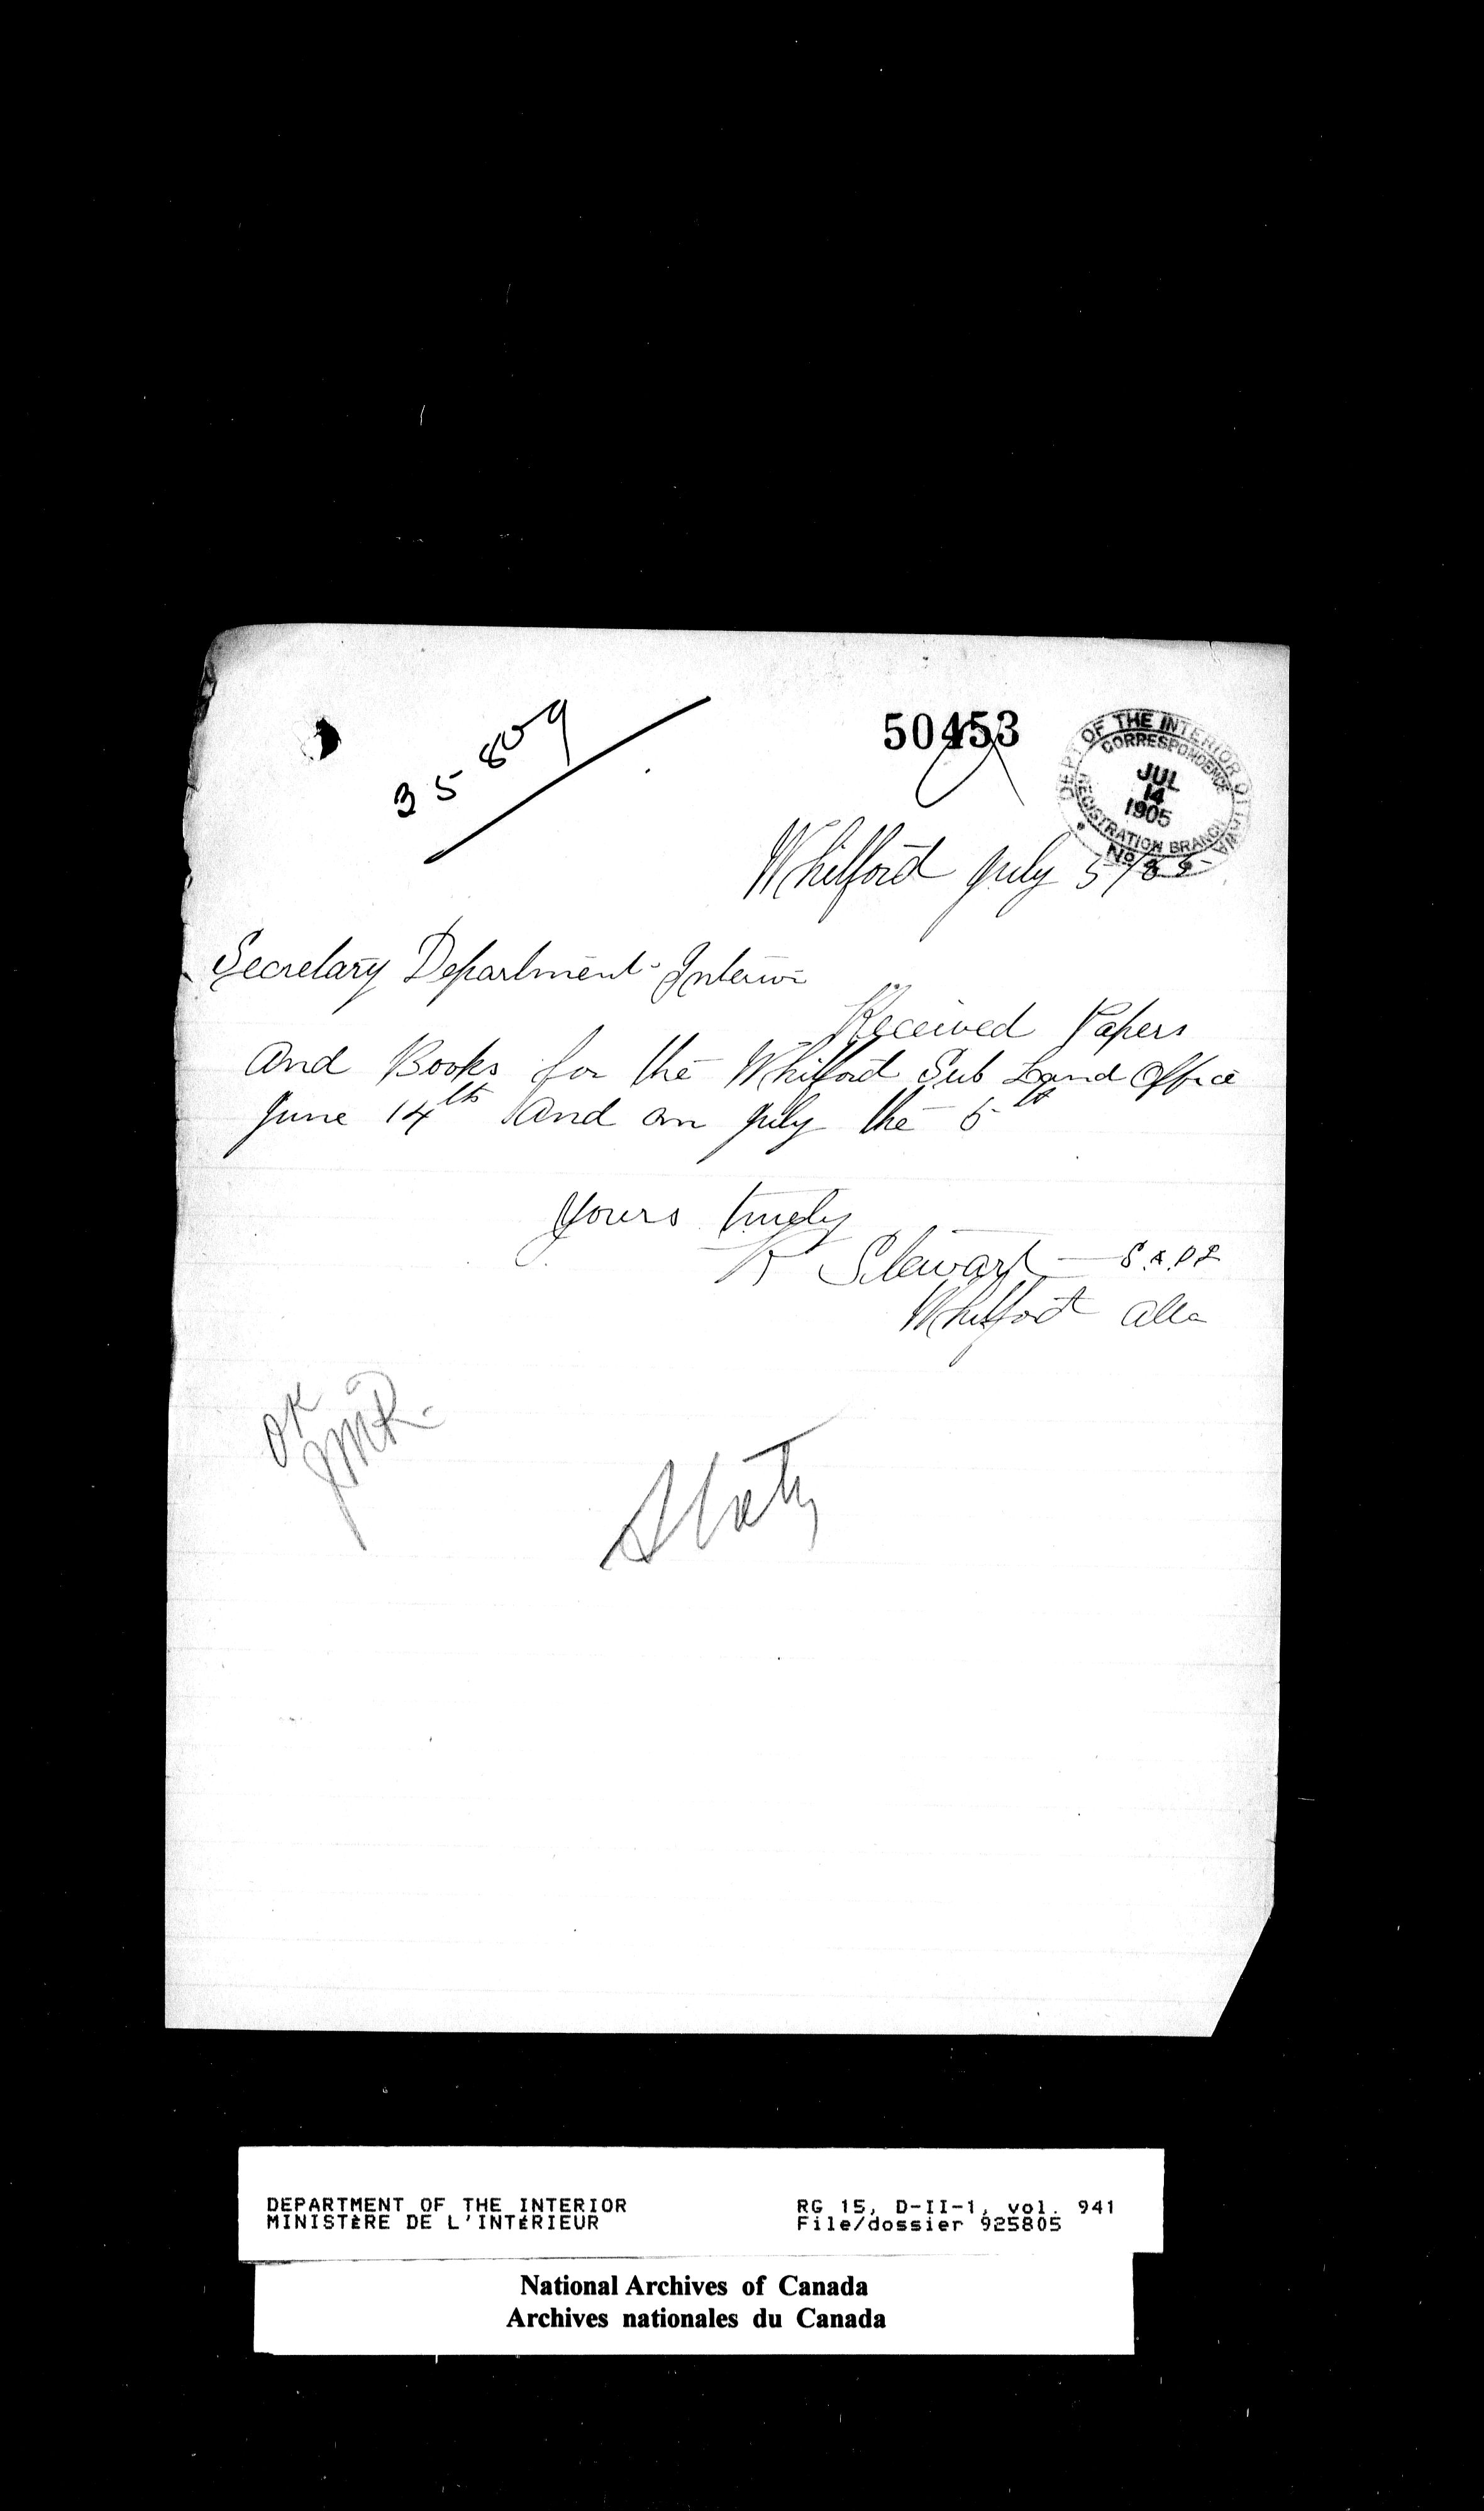 35809
50453
DEPT OF THE INTERIOR OTTAWA
CORRESPONDENCE
JUL
14
1905
REGISTRATION BRANCH
No
Whitford July 5/05
Secretary Department Interior
Received Papers
And Books for the Whitford Sub Land Office
June 14th And on July the 5th
Yours truely
Stewart — S.A.D.L
Whitford Alta
OK
JMR.
DEPARTMENT OF THE INTERIOR RG 15, D-II-1, vol. 941
MINISTÈRE DE L'INTÉRIEUR File/dossier 925805
National Archives of Canada
Archives nationales du Canada